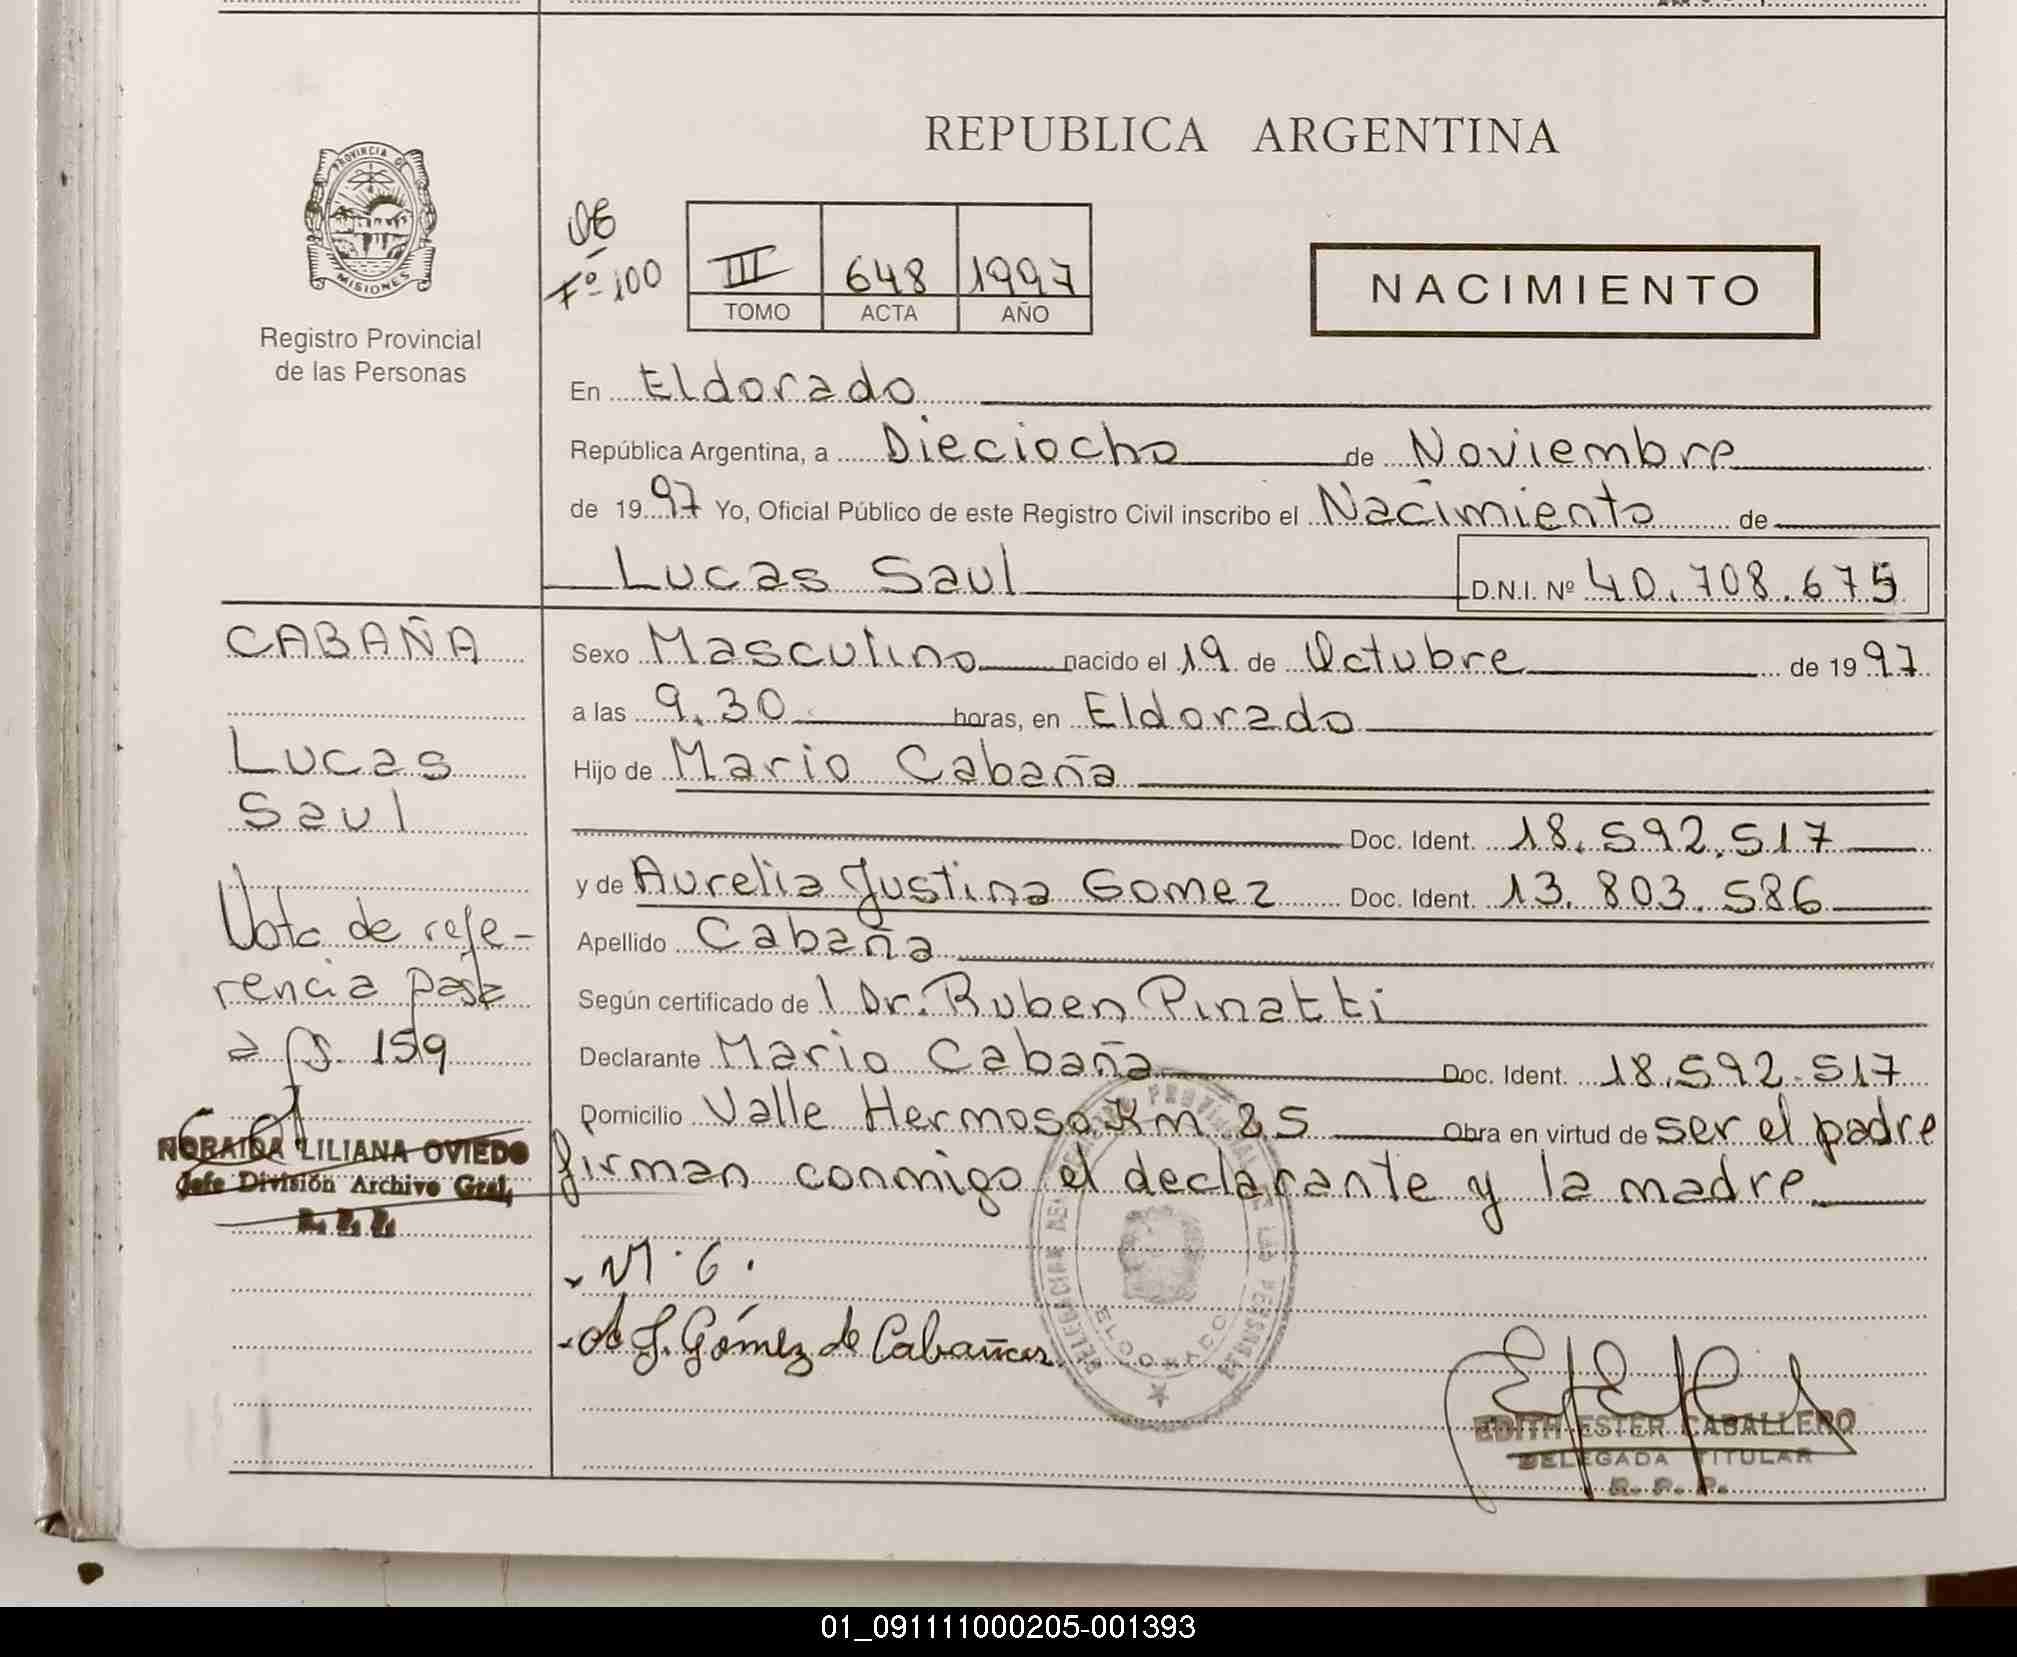 REPUBLICA ARGENTINA
PROVINCIA D
MISIONES
Registro Provincial
de las Personas
Fº 100
III 648 1997
TOMO ACTA AÑO
NACIMIENTO
En Eldorado
República Argentina, a Dieciocho de Noviembre
de 1997 Yo, Oficial Público de este Registro Civil inscribo el Nacimiento de
Lucas Saul D.N.I. Nº 40.708.675
CABAÑA
Lucas
Saul
Nota de refe-
rencia pasa
a fs. 159
NORAIDA LILIANA OVIEDO
Jefe División Archivo Gral,
R. P. P.
Sexo Masculino nacido el 19 de Octubre de 1997
a las 9.30 horas, en Eldorado
Hijo de Mario Cabaña
Doc. Ident. 18.592.517
y de Aurelia Justina Gomez Doc. Ident. 13.803.586
Apellido Cabaña
Según certificado de l Dr. Ruben Pinatti
Declarante Mario Cabaña Doc. Ident. 18.592.517
Domicilio Valle Hermoso Km 8,5 Obra en virtud de ser el padre
firman conmigo el declarante y la madre
- M. C.
- A J. Gómez de Cabañas
PROVINCIAL DE LAS PERSONAS
ELDORADO
EDITH ESTER CABALLERO
DELEGADA TITULAR
R. P. P.
01_091111000205-001393